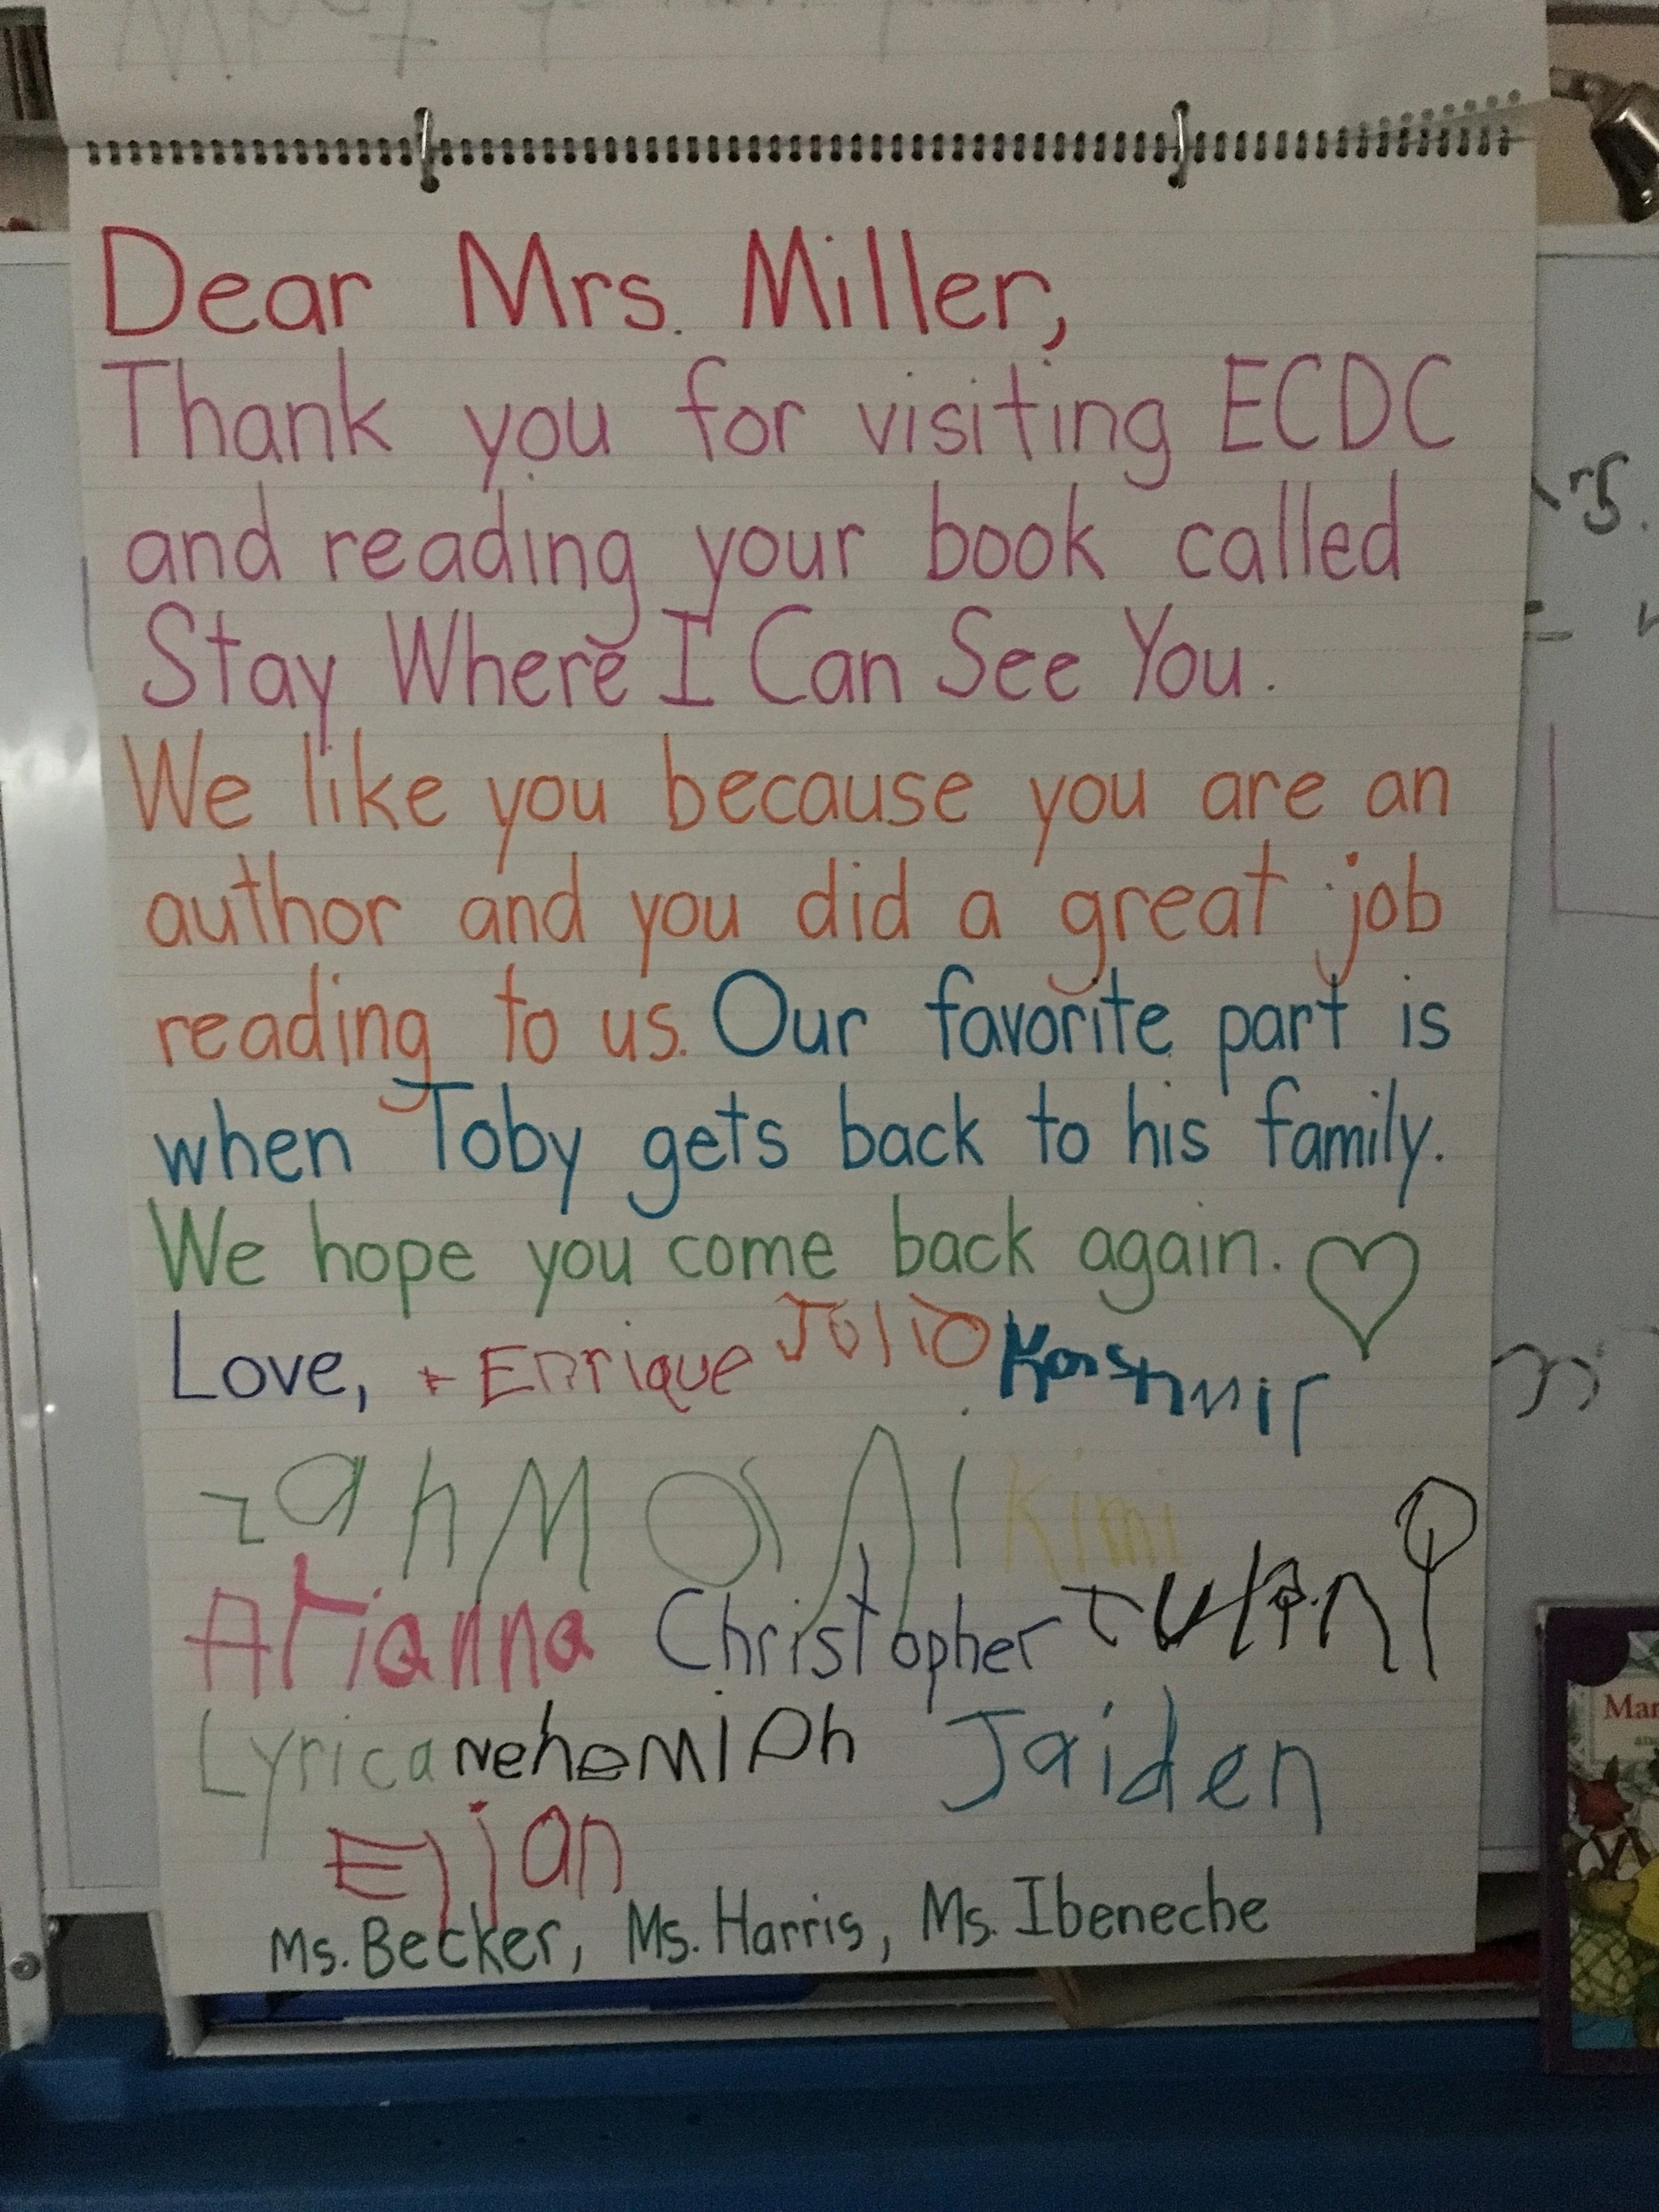 Dear Mrs. Miller,
Thank you for visiting ECDC
and reading your book called
Stay Where I Can See You.
We like you because you are an
author and you did a great job
reading to us. Our favorite part is
when Toby gets back to his family.
We hope you come back again.
Love, Enrique Julio Kashmir
Kimi
Arianna Christopher
Lyrica Nehemiah Jaiden
Ejan
Ms. Becker, Ms. Harris, Ms. Ibeneche
rs.
Mar